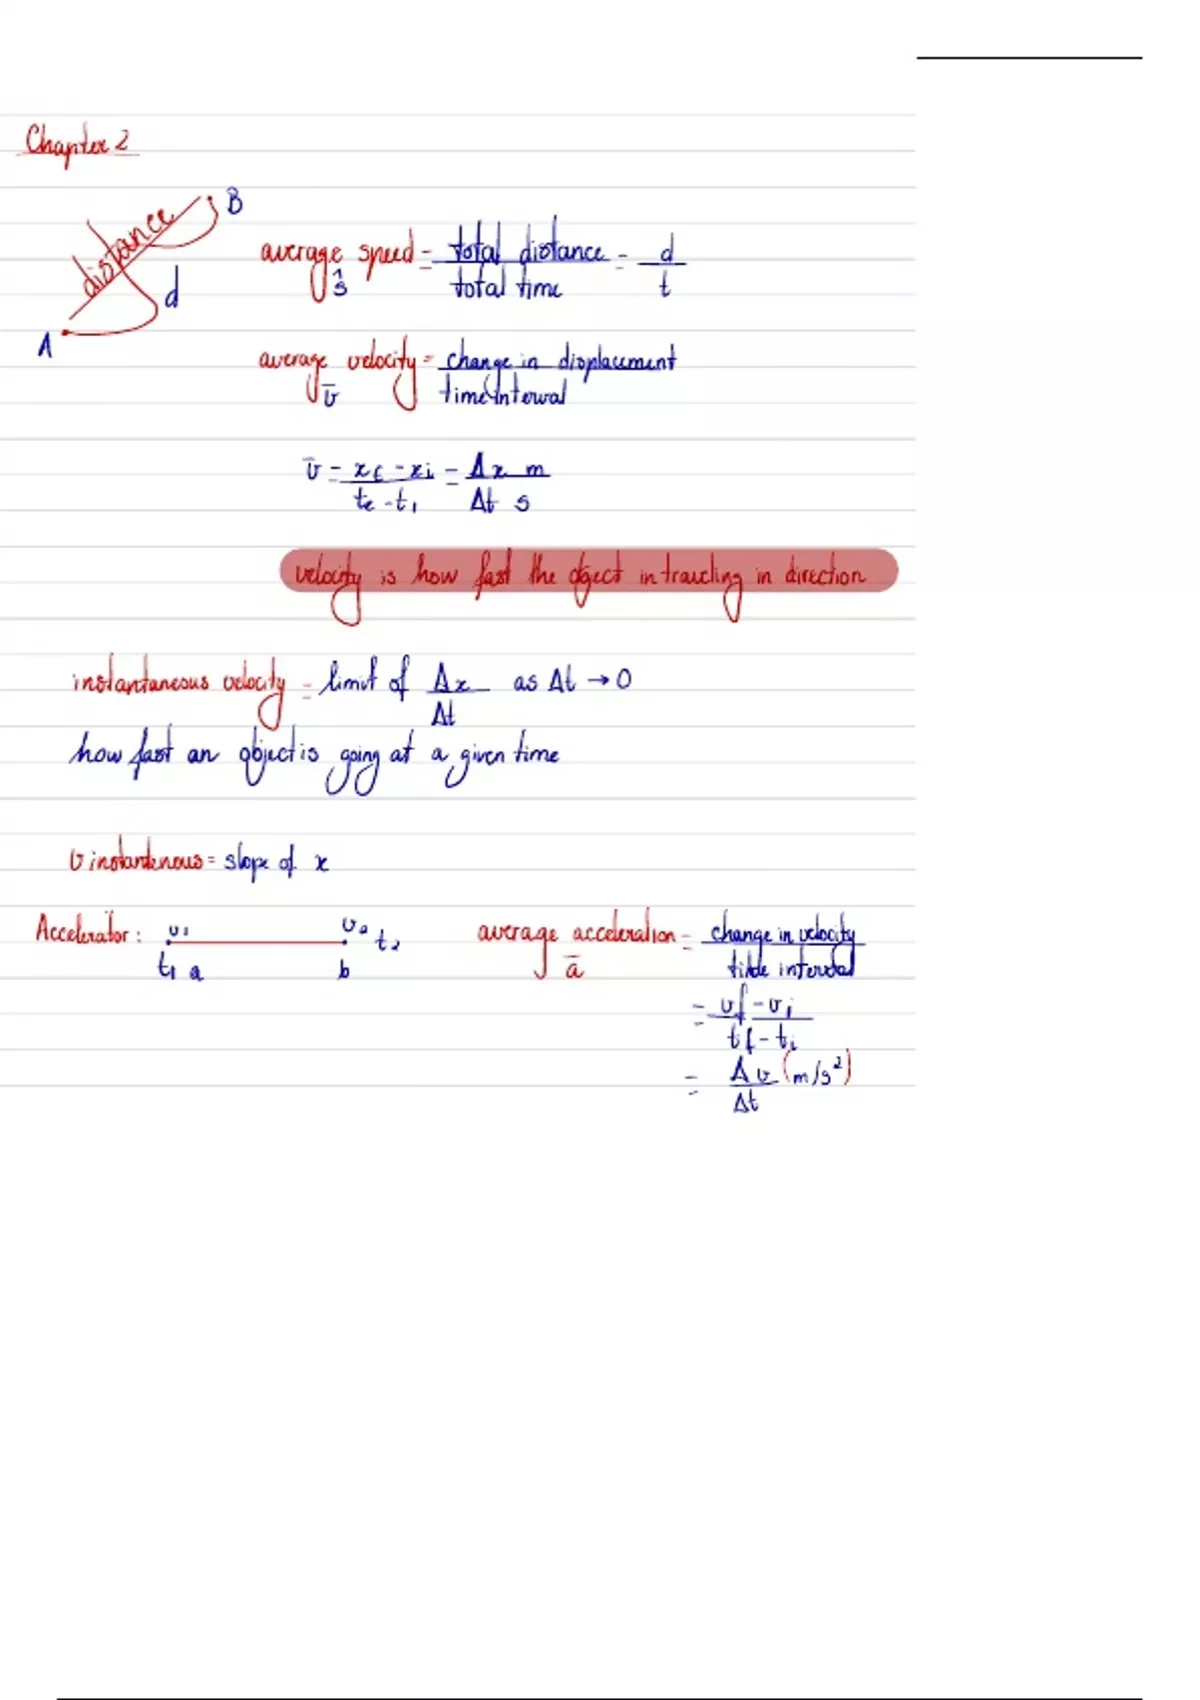 Chapter 2
B
distance
d
A
average speed = total distance = d
s total time t
average velocity = change in displacement
v̄ time interval
v̄ = xf - xi = Δx m
t2 - t1 Δt s
velocity is how fast the object in traveling in direction
instantaneous velocity = limit of Δx as Δt → 0
Δt
how fast an object is going at a given time
v instantenous = slope of x
Accelerator: v1 v2 t2
t1 a b
average acceleration = change in velocity
ā time interval
= vf - vi
tf - ti
= Δv (m/s²)
Δt